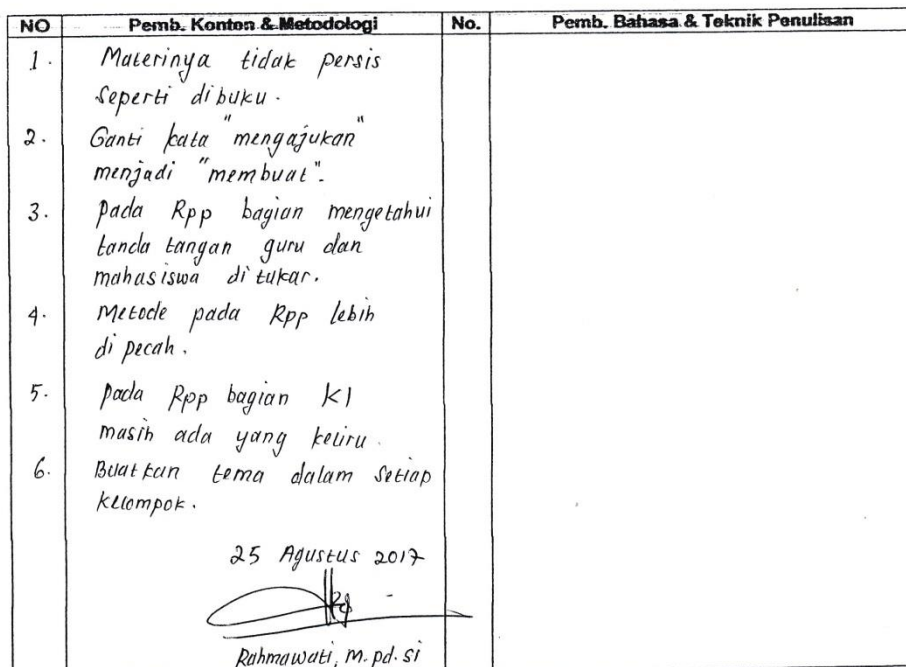 NO Pemb. Konten & Metodologi No. Pemb. Bahasa & Teknik Penulisan
1. Materinya tidak persis
seperti dibuku.
2. Ganti kata "mengajukan"
menjadi "membuat".
3. pada Rpp bagian mengetahui
tanda tangan guru dan
mahasiswa di tukar.
4. Metode pada Rpp lebih
di pecah.
5. pada Rpp bagian KI
masih ada yang keliru.
6. Buatkan tema dalam setiap
kelompok.
25 Agustus 2017
Rahmawati, M.pd.si